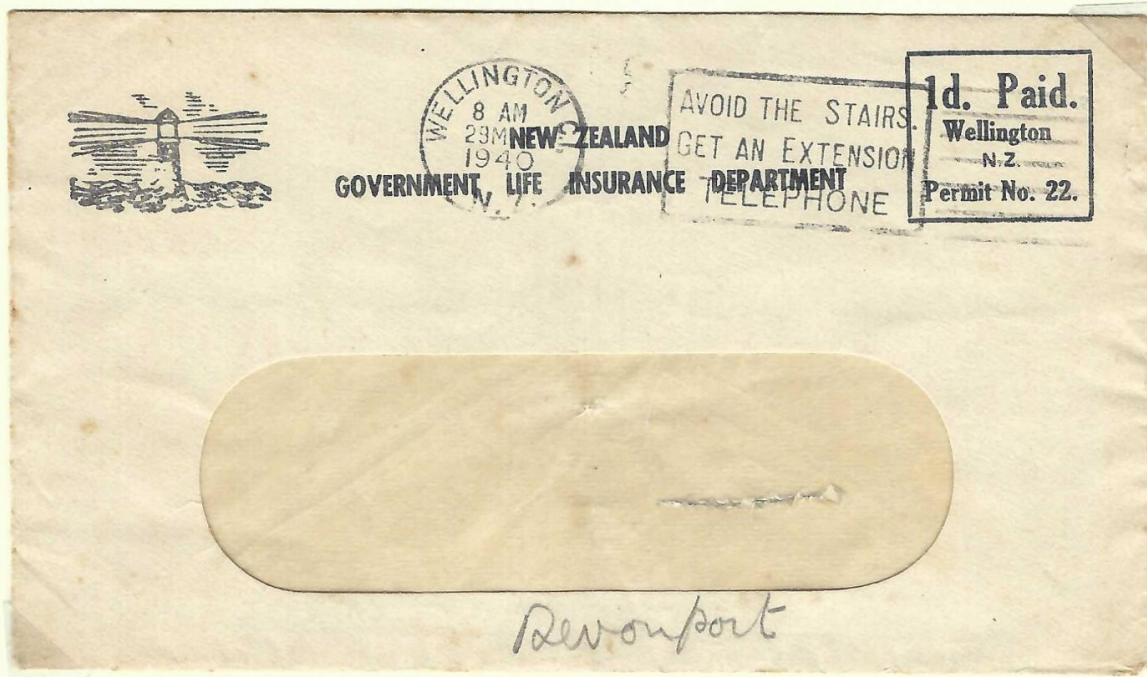 WELLINGTON C1
8 AM
29M
1940
N.Z.
NEW ZEALAND
GOVERNMENT LIFE INSURANCE DEPARTMENT
AVOID THE STAIRS.
GET AN EXTENSION
TELEPHONE
1d. Paid.
Wellington
N.Z.
Permit No. 22.
Devonport